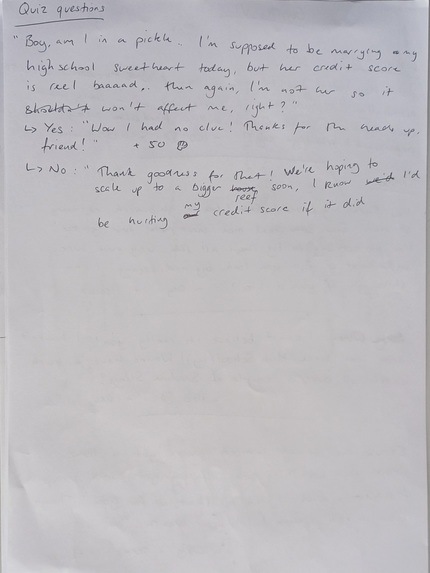 Quiz questions
"Boy, am I in a pickle. I'm supposed to be marrying my
high school sweetheart today, but her credit score
is reel baaaad,. then again, I'm not her so it
won't affect me, right?"
↳ Yes: "Wow I had no clue! Thanks for the heads up,
friend!" +50
↳ No: "Thank goodness for that! We're hoping to
scale up to a bigger reef soon, I know I'd
be hurting my credit score if it did